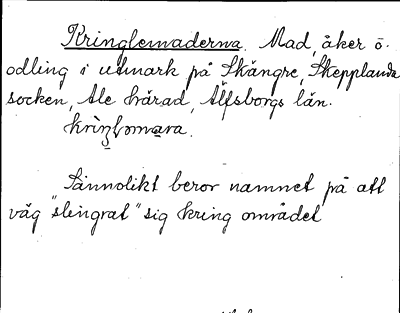 Kringlemaderna. Mad, åker o.
odling i utmark på Skångre, Skepplanda
socken, Ale härad, Älfsborgs län.
Sannolikt beror namnet på att
väg "slingrat" sig kring området